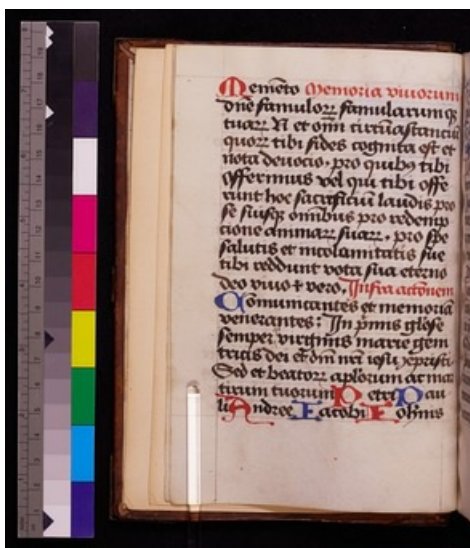 Memēto Memoria viuorum
dn̄e famuloꝝ famularumqꝫ
tuaꝝ N et om̄i circūastanciū
quoꝝ tibi fides cognita est et
nota deuocio, pro quibꝫ tibi
offerimus vel qui tibi offe
runt hoc sacrificiū laudis pro
se suisqꝫ omnibus pro redemp
cione animaꝝ suaꝝ, pro spe
salutis et incolumitatis sue
tibi reddunt vota sua eterno
deo viuo ⁊ vero. Infra actōnem
Cōmunicantes et memoriā
venerantes: In pīmis glōse
semper virginis marie geni
tricis dei et dn̄i nr̄i iesu xp̄isti
Sed et beatoꝝ apl̄orum ac mar
tirum tuorum Petri Pau
li Andree Iacobi Iohīnis